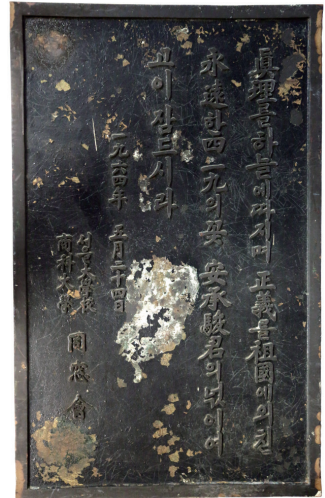 眞理를하늘에 正義를祖國에외친
永遠한四一九의꽃 安承駿君의넋이여
고이잠드시라
一九六四年 五月二十四日
서울大學校
商科大學 同窓會